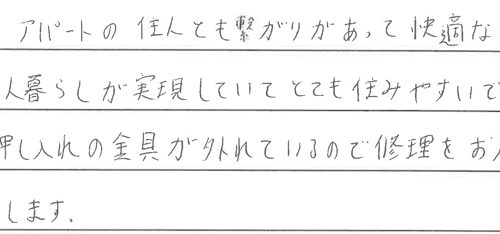 アパートの住人とも繋がりがあって快適な
人暮らしが実現していてとても住みやすいで
押し入れの金具が外れているので修理をお
します。